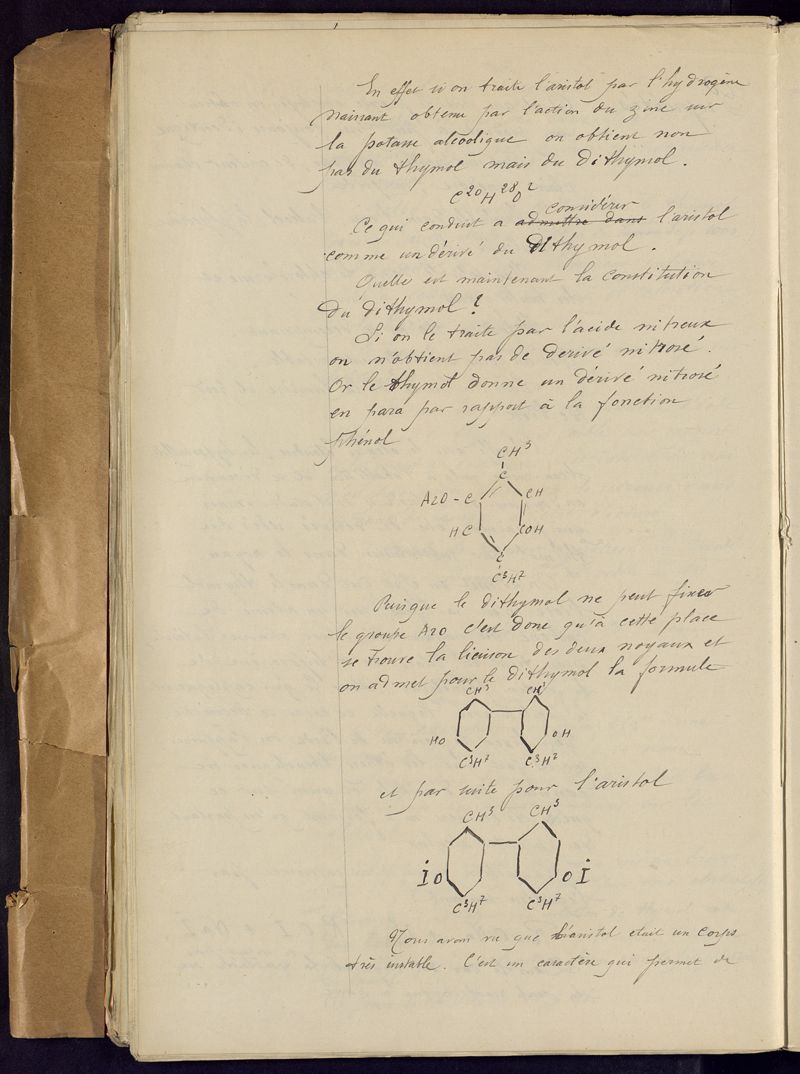 En effet si on traite l'aristol par l'hydrogène
naissant obtenu par l'action du zinc sur
la potasse alcoolique on obtient non
pas du thymol mais du dithymol.
C20H28O2
considérer
Ce qui conduit a admettre dans l'aristol
comme un dérivé du dithymol.
Quelle est maintenant la constitution
du dithymol ?
Si on le traite par l'acide nitreux
on n'obtient pas de derivé nitrosé.
Or le thymol donne un dérivé nitrosé
en para par rapport à la fonction
phénol
CH3
C
AzO-C CH
HC COH
C
C3H7
Puisque le dithymol ne peut fixer
le groupe AzO c'est donc qu'à cette place
se trouve la liaison des deux noyaux et
on admet pour le dithymol la formule
CH3 CH3
HO OH
C3H7 C3H7
et par suite pour l'aristol
CH3 CH3
IO OI
C3H7 C3H7
Nous avons vu que l'aristol etait un corps
très instable. C'est un caractère qui permet de